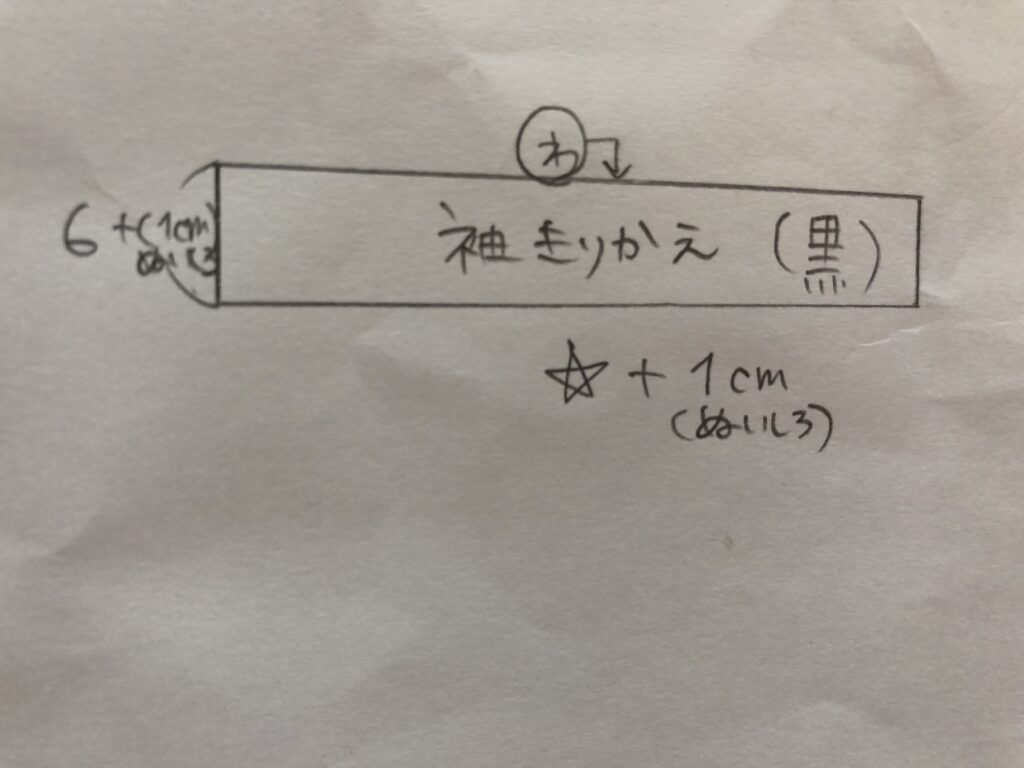 わ
袖きりかえ (黒)
6 + (1cm
ぬいしろ)
☆ + 1cm
(ぬいしろ)